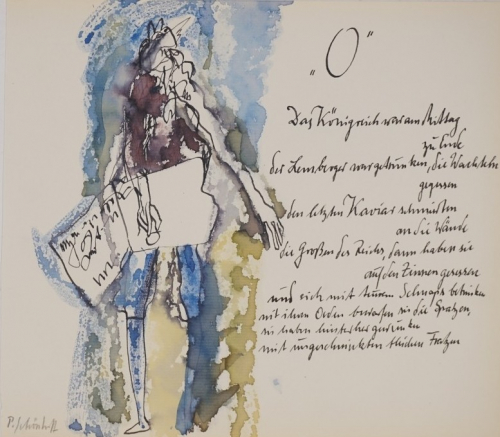 „O“
Das Königreich war am Mittag
zu Ende
der Lemberger war getrunken, die Wachteln
gegessen
den letzten Kaviar schmierten
an die Wände
die Großen des Reichs, dann haben sie
auf den Zinnen gesessen
und sich mit Schnaps betrunken
mit ihren Orden bewarfen sie die Spatzen
sie haben hinterher gewunken
mit ungeschminkten Fratzen